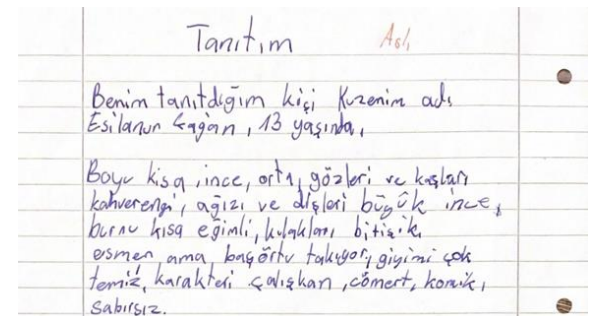 Tanıtım Aslı
Benim tanıtdığım kişi Kuzenim adı
Esilanur, 13 yaşında,
Boyu kısa, ince, orta, gözleri ve kaşları
kahverengi, ağızı ve dişleri büyük ince,
burnu kısa eğimli, kulakları bitişik
esmer, ama, başörtü takıyor, giyimi çok
temiz, karakteri çalışkan, cömert, komik,
sabırsız.